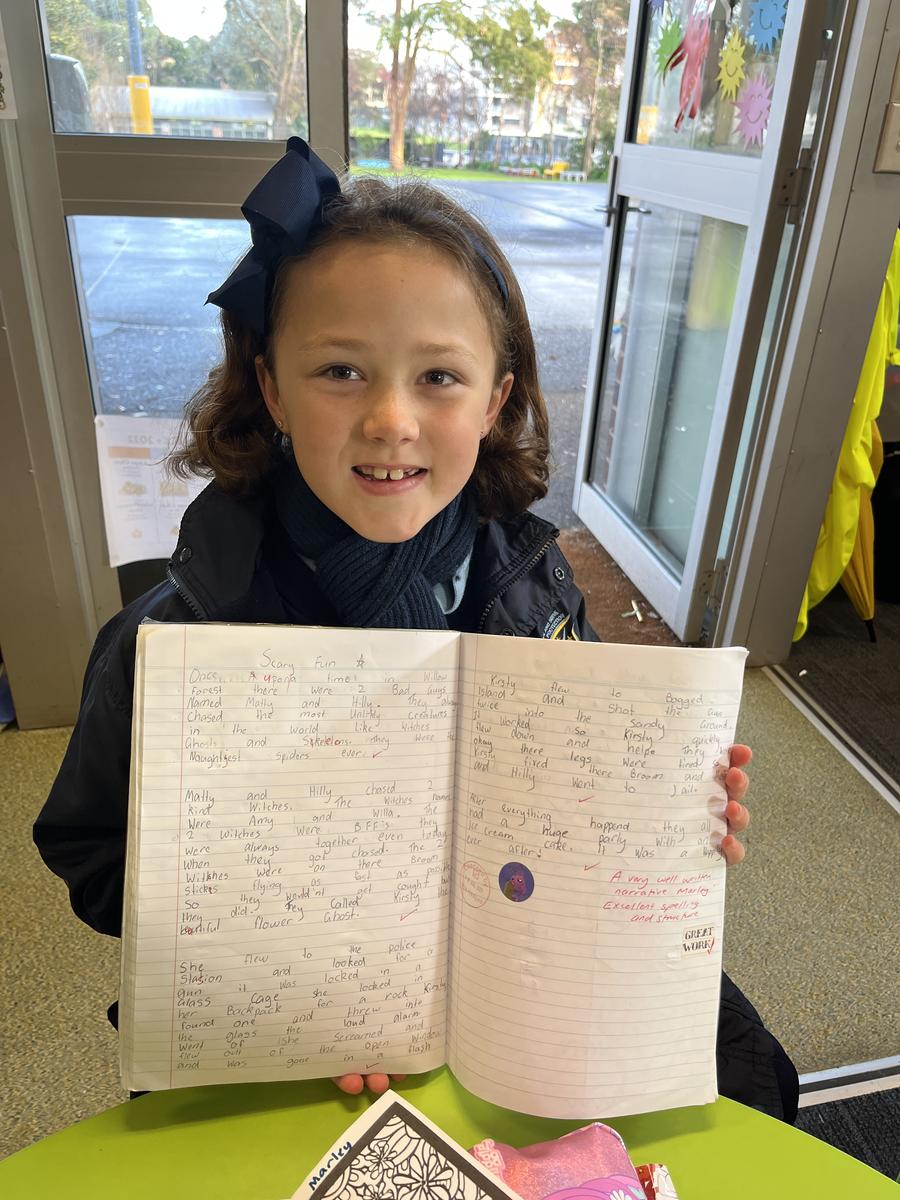 Scary Fun
Once A upon a time! in Willow
forest there were 2 Bad Guys
Named Matty and Hilly. They
Chased the most Unlikly Creatures
in the World like Witches
Ghosts and Skeletons. They were the
Naughtiest spiders ever.
Matty and Hilly chased 2
kind Witches. The Witches
Were Amy and Willa. The
2 witches were BFF's they
were always together even today
When they got chased. The 2
Witches were on there Broom
sticks flying as fast as
So they would'nt get cought but
they did. They Called Kirsty the
flower Ghost.
She flew to the police
Stasion and looked for a
gun it was locked in a
Glass Cage she looked in
her Backpack for a rock Kirsty
found one and threw into
the glass the loud alarm
went of she Screamed and
flew out of the open Window
and was gone in a flash
Kirsty flew to Bogged
Island and Shot the Gun
twice into the Sandy Ground.
It worked so Kirsty quickly
flew down and helpe They
okay there legs were tired
Kirsty fixed there Broom and
and Hilly Went to Jail.
After everything happend they all
had a huge party with an
Ice cream cake. It was a
ever after!
A very well written
narrative Marley.
Excellent spelling
and structure
GREAT
WORK
Marley
2022